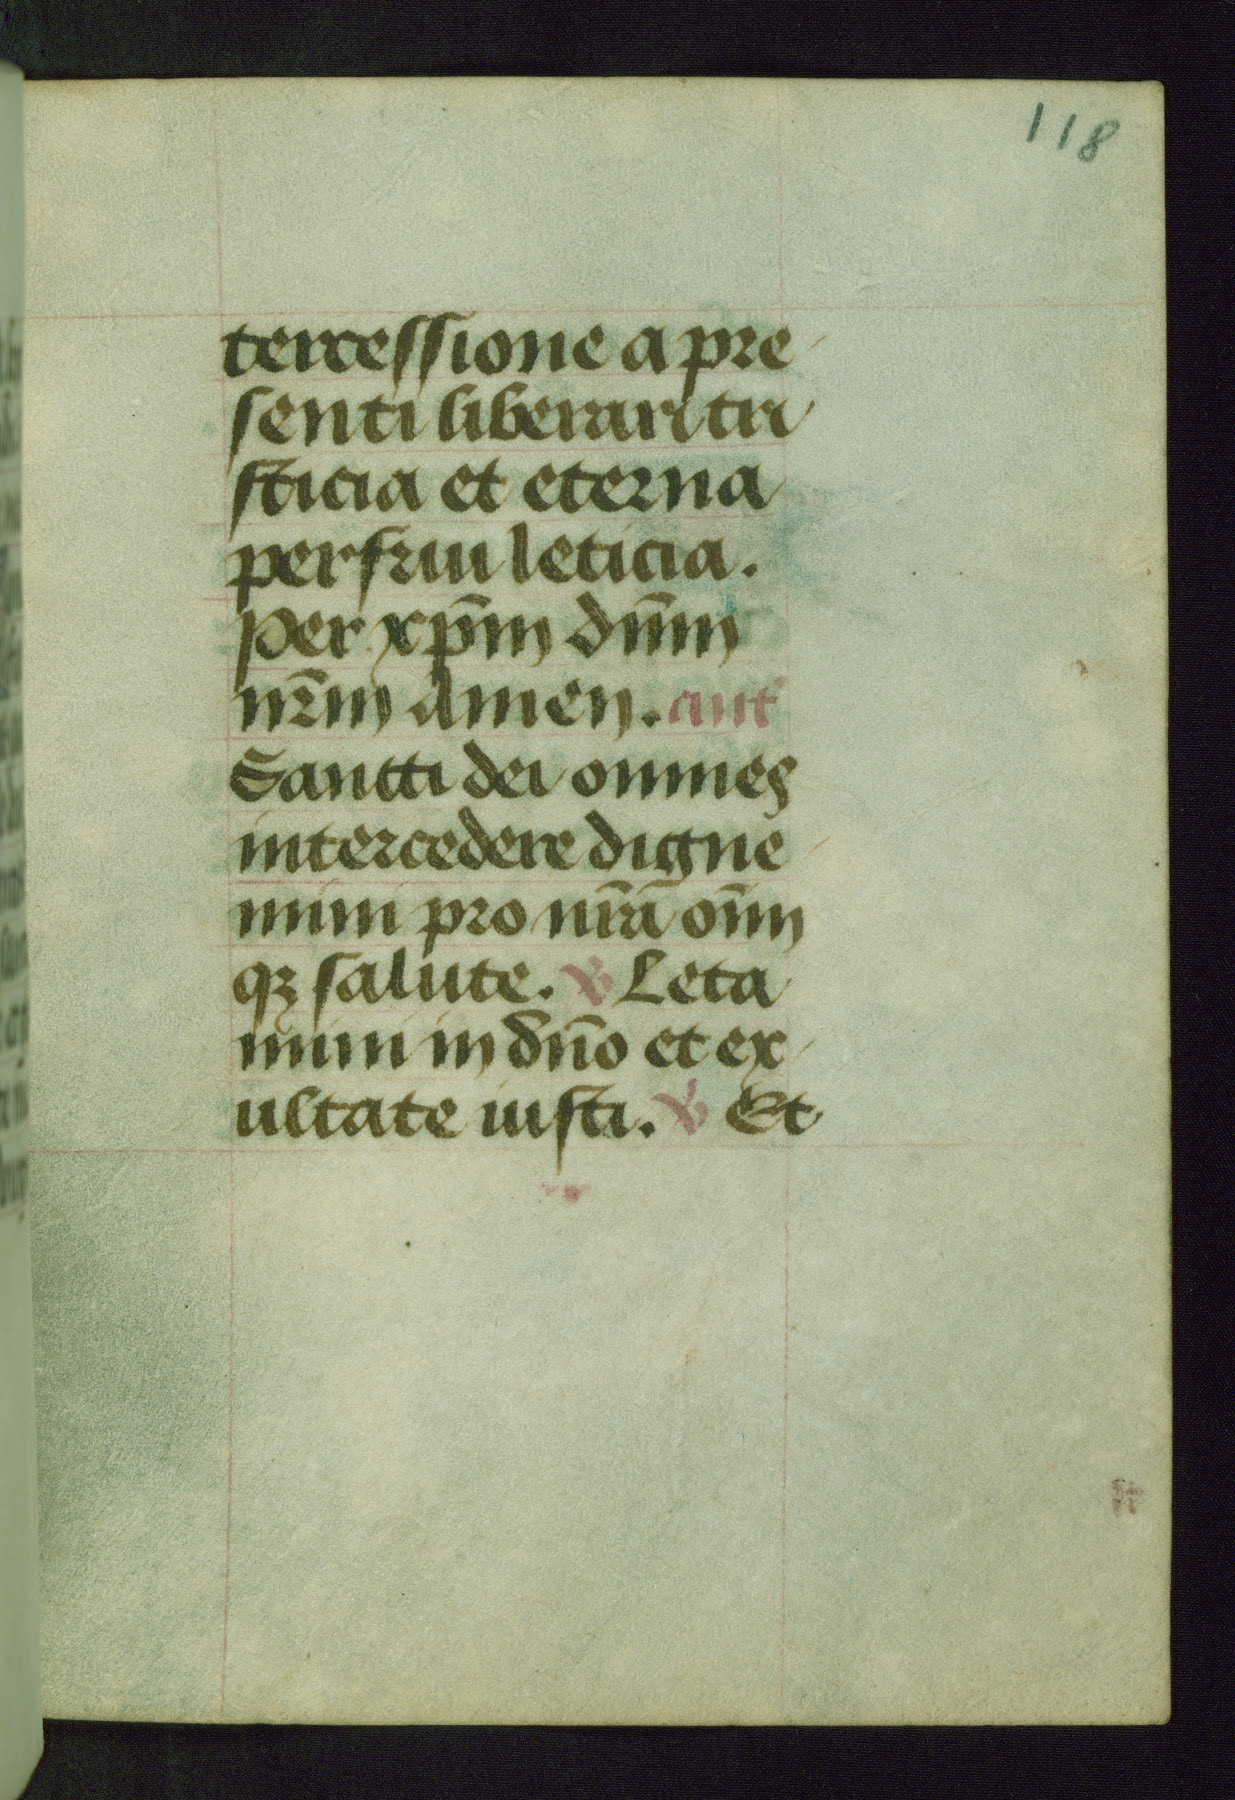 118
tercessione a pre
senti liberari tri
sticia et eterna
perfrui leticia.
Per xp̄m dn̄m
nr̄m amen. ant
Santti dei omnes
intercedere digne
mini pro nr̄ā om̄n
qꝫ salute. ℣ Leta
mini in dn̄o et ex
ultate iusti. ℣ Et